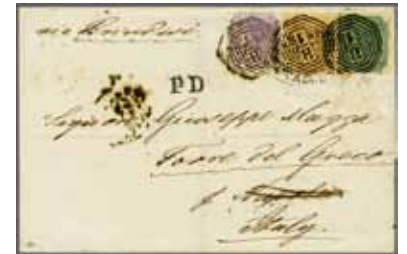 via Brindisi
PD
Signor Giuseppe Mazza
Torre del Greco
Italy.